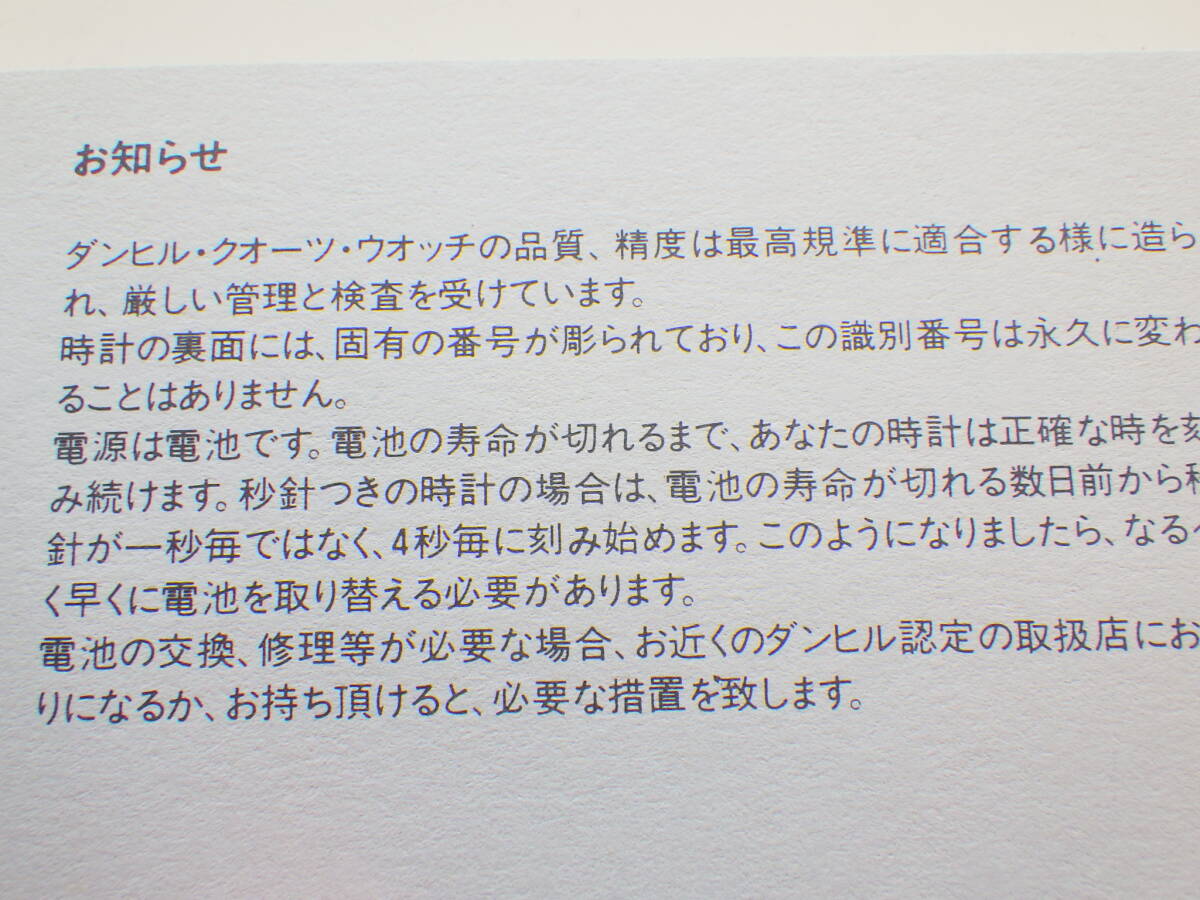 お知らせ
ダンヒル・クオーツ・ウオッチの品質、精度は最高規準に適合する様に造ら
れ、厳しい管理と検査を受けています。
時計の裏面には、固有の番号が彫られており、この識別番号は永久に変わ
ることはありません。
電源は電池です。電池の寿命が切れるまで、あなたの時計は正確な時を刻
み続けます。秒針つきの時計の場合は、電池の寿命が切れる数日前から秒
針が一秒毎ではなく、4秒毎に刻み始めます。このようになりましたら、なるべ
く早くに電池を取り替える必要があります。
電池の交換、修理等が必要な場合、お近くのダンヒル認定の取扱店にお
りになるか、お持ち頂けると、必要な措置を致します。